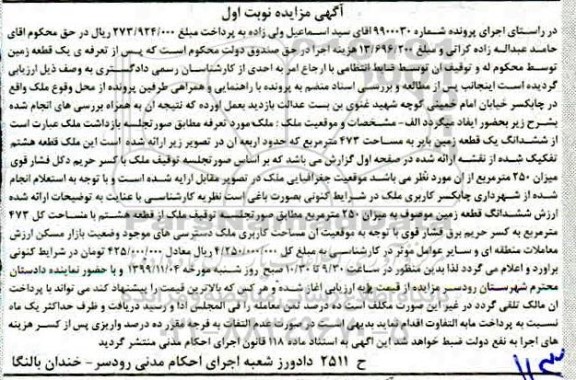 آگهی مزایده نوبت اول
در راستای اجرای پرونده شماره ۹۹۰۰۰۳۰ آقای سید اسماعیل ولی زاده به پرداخت مبلغ ۲۷۳/۹۲۴/۰۰۰ ریال در حق محکوم آقای
حامد عبداله زاده کراتی و مبلغ ۱۳/۶۹۶/۲۰۰ هزینه اجرا در حق صندوق دولت محکوم است که پس از تعرفه ی یک قطعه زمین
توسط محکوم له و توقیف آن توسط ضابط انتظامی با ارجاع امر به احدی از کارشناسان رسمی دادگستری به وصف ذیل ارزیابی
گردیده است اینجانب پس از مطالعه و بررسی اسناد منضم به پرونده با راهنمایی و همراهی طرفین پرونده از محل وقوع ملک واقع
در چابکسر خیابان امام خمینی کوچه شهید غنوی بن بست عدالت بازدید بعمل آورده که نتیجه آن به همراه بررسی های انجام شده
بشرح زیر بحضور ایفاد میگردد الف- مشخصات و موقعیت ملک : ملک مورد تعرفه مطابق صورتجلسه بازداشت ملک عبارت است
از ششدانگ یک قطعه زمین بایر به مساحت ۴۷۳ مترمربع که حدود اربعه آن در تصویر زیر ارائه شده است این ملک قطعه هشتم
تفکیک شده از نقشه ارائه شده در صفحه اول گزارش می باشد که بر اساس صورتجلسه توقیف ملک با کسر حریم دکل فشار قوی
میزان ۲۵۰ مترمربع از آن مورد نظر می باشد موقعیت جغرافیایی ملک در تصویر مقابل ارایه شده است و با توجه به استعلام انجام
شده از شهرداری چابکسر کاربری ملک در شرایط کنونی بصورت باغی است نظریه کارشناسی با عنایت به توضیحات ارائه شده
ارزش ششدانگ قطعه زمین موصوف به میزان ۲۵۰ مترمربع مطابق صورتجلسه توقیف ملک از قطعه هشتم با مساحت کل ۴۷۳
مترمربع به کسر حریم برق فشار قوی با توجه به موقعیت آن مساحت کاربری ملک دسترسی های موجود وضعیت بازار مسکن ارزش
معاملات منطقه ای و سایر عوامل موثر در کارشناسی به مبلغ کل ۴/۲۵۰/۰۰۰/۰۰۰ ریال معادل ۴۲۵/۰۰۰/۰۰۰ تومان در شرایط کنونی
برآورد و اعلام می گردد لذا بدین منظور در ساعت ۹/۳۰ تا ۱۰/۳۰ صبح روز شنبه مورخه ۱۳۹۹/۱۱/۰۴ و با حضور نماینده دادستان
محترم شهرستان رودسر مزایده از قیمت پایه ارزیابی آغاز شده و هر کس که بالاترین قیمت را پیشنهاد کند می تواند با پرداخت
آن مالک تلقی گردد در غیر این صورت مکلف است ده درصد ثمن معامله را فی المجلس ادا و رسید دریافت و ظرف حداکثر یک ماه
نسبت به پرداخت مابه التفاوت اقدام نماید بدیهی است در صورت عدم پرداخت مابه التفاوت به فرجه مقرر ده درصد واریزی پس از کسر هزینه
های اجرا به نفع دولت ضبط خواهد شد این آگهی به استناد ماده ۱۱۸ قانون اجرای احکام مدنی منتشر گردید
ح ۲۵۱۱ دادورز شعبه اجرای احکام مدنی رودسر- خندان بالنگا